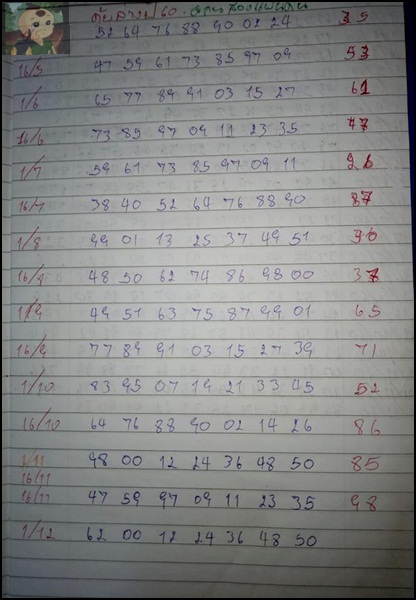 52 64 76 88 90 02 24 35
16/5 47 59 61 73 85 97 09 53
1/6 65 77 89 91 03 15 27 61
16/6 73 85 97 09 11 23 35 77
1/7 59 61 73 85 97 09 11 26
16/7 38 40 52 64 76 88 90 87
1/8 99 01 13 25 37 49 51 90
16/8 48 50 62 74 86 98 00 37
1/9 49 51 63 75 87 99 01 65
16/9 77 89 91 03 15 27 39 71
1/10 83 95 07 19 21 33 45 52
16/10 64 76 88 90 02 14 26 86
1/11 98 00 12 24 36 48 50 85
16/11
16/11 47 59 97 09 11 23 35 98
1/12 62 00 12 24 36 48 50